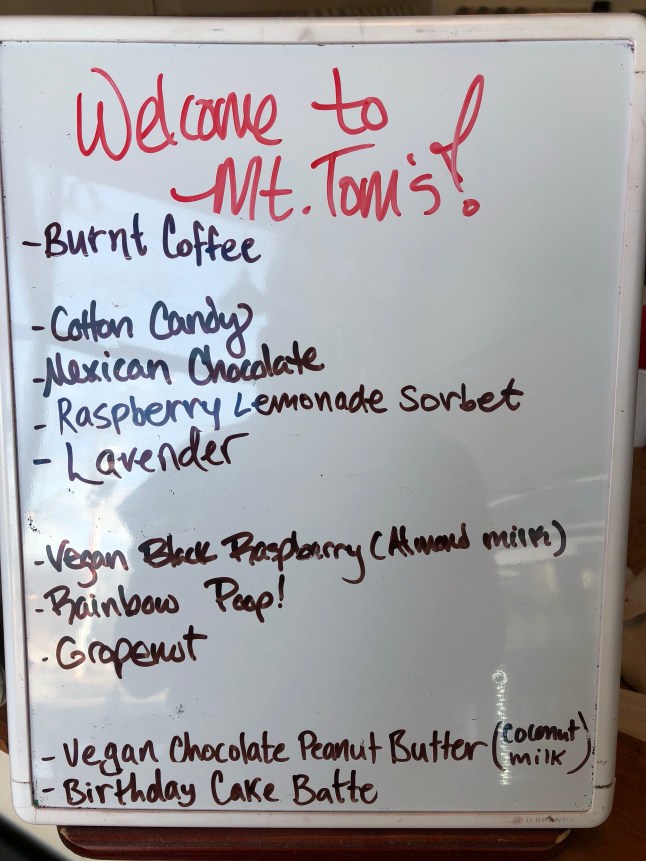 Welcome to
Mt. Tom's!
-Burnt Coffee
-Cotton Candy
-Mexican Chocolate
- Raspberry Lemonade Sorbet
- Lavender
-Vegan Black Raspberry (Almond milk)
-Rainbow Poop!
-Grapenut
- Vegan Chocolate Peanut Butter (coconut milk)
- Birthday Cake Batte
U BRANDS